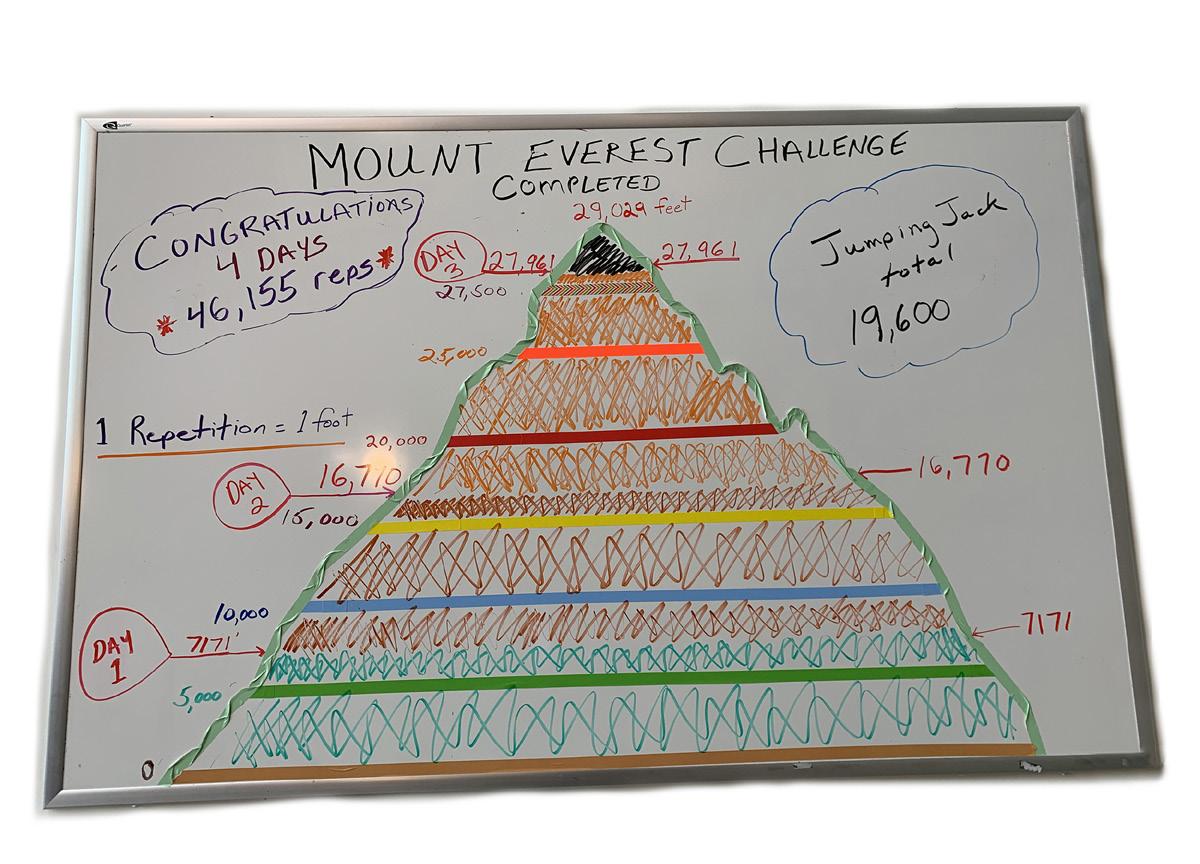 Quartet
MOUNT EVEREST CHALLENGE
COMPLETED
29,029 feet
CONGRATULATIONS
4 DAYS
*46,155 reps*
Jumping Jack
total
19,600
DAY
3
27,961
27,961
27,500
25,000
1 Repetition = 1 foot
20,000
DAY
2
16,770
16,770
15,000
10,000
DAY
1
7171
7171
5,000
0